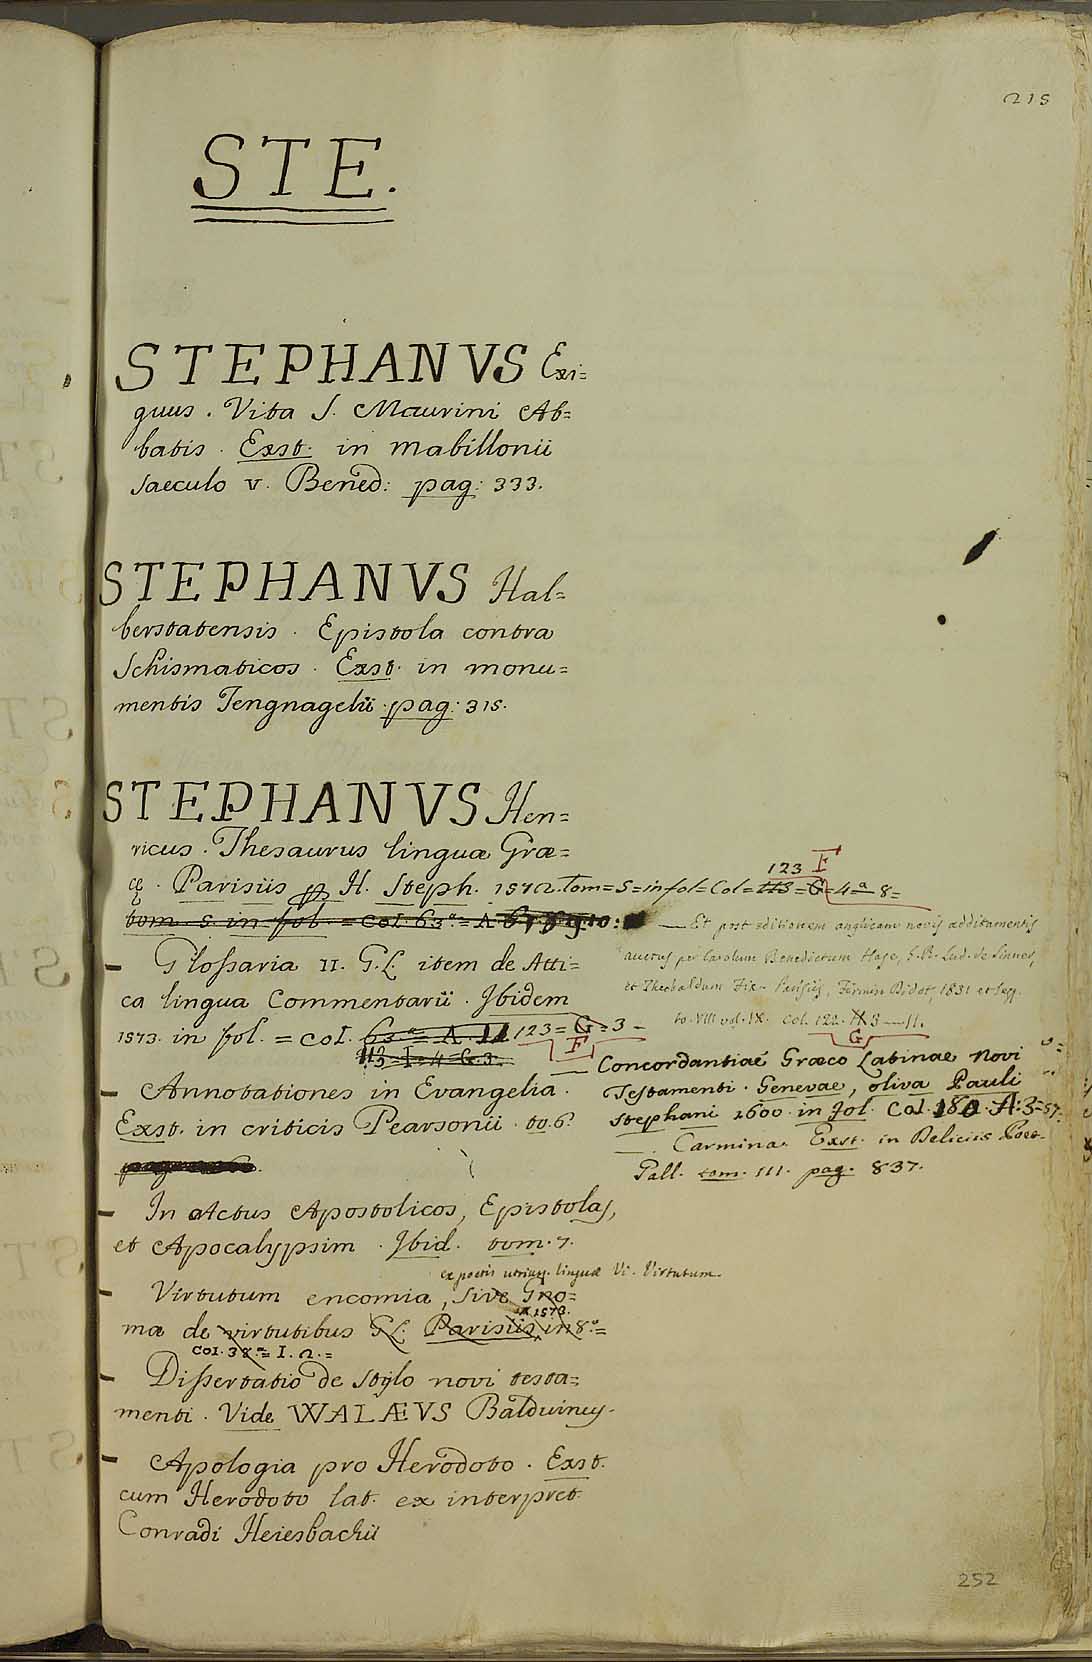 215
STE.
STEPHANVS Exi=
guus. Vita S. Maurini Ab=
batis. Exst. in Mabillonii
saeculo v. Bened: pag: 333.
STEPHANVS Hal=
berstatensis. Epistola contra
Schismaticos. Exst. in monu=
mentis Tengnagelii pag: 315.
STEPHANVS Hen=
ricus. Thesaurus linguæ Græ=
cę. Parisiis H. Steph. 1572. Tom=5=in fol=Col=113=G=4ª=8=
123 F
tom. 5 in fol. = Col. 63ª= A
— Et post editionem anglicam novis additamentis
auctus per Carolum Benedictum Hase, Lud. de Sinner,
et Theobaldum Fix. Parisiis, Firmin Didot, 1831 et seqq.
to. VIII vol. IX. Col. 122. H 3 — 11.
G
– Glossaria II. G.L. item de Atti=
ca lingua Commentarii. Ibidem
1573. in fol. = Col. 63ª= A. 11 123= G=3 –
F
113=I=4=G.3.
– Annotationes in Evangelia.
Exst. in criticis Pearsonii. to.6.
– In Actus Apostolicos, Epistolas,
et Apocalypsim. Ibid. tom. 7.
ex poetis utriusq. linguæ Vi. Virtutum.
– Virtutum encomia, sive Gno=
mæ de virtutibus GL. Parisiis, in 8.º=
1573.
Col. 38.ª= I. 2.=
– Dissertatio de stylo novi testa=
menti. Vide WALÆVS Balduinus.
– Apologia pro Herodoto. Exst.
cum Herodoto lat. ex interpret.
Conradi Heiesbachii
— Concordantiae Græco Latinae Novi
Testamenti. Genevae, oliva Pauli
Stephani 1600. in fol. Col. 180. A. 3=57.
— Carmina. Exst. in Deliciis Poet.
Gall. tom. III. pag. 837.
252